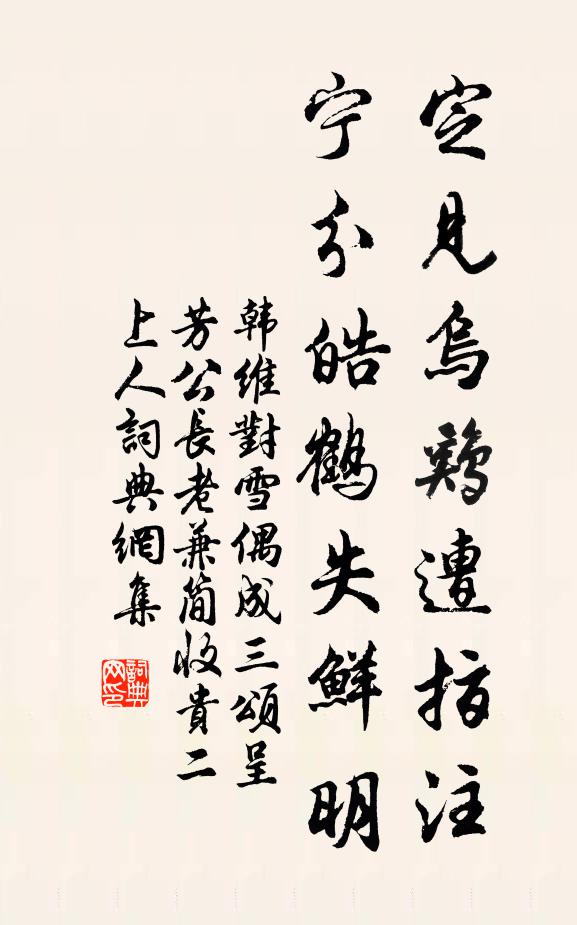 定見烏鷄遭指注
宁分皓鶴失鮮明
韩維對雪偶成三頌呈
芳公長老兼简收貴二
上人詞典網集
詞典網印